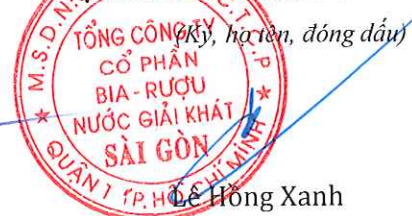 (Ký, họ tên, đóng dấu)
M.S.D.N:
C.T.P
TỔNG CÔNG TY
CỔ PHẦN
BIA - RƯỢU
NƯỚC GIẢI KHÁT
SÀI GÒN
QUẬN 1 TP. HỒ CHÍ MINH
Lê Hồng Xanh